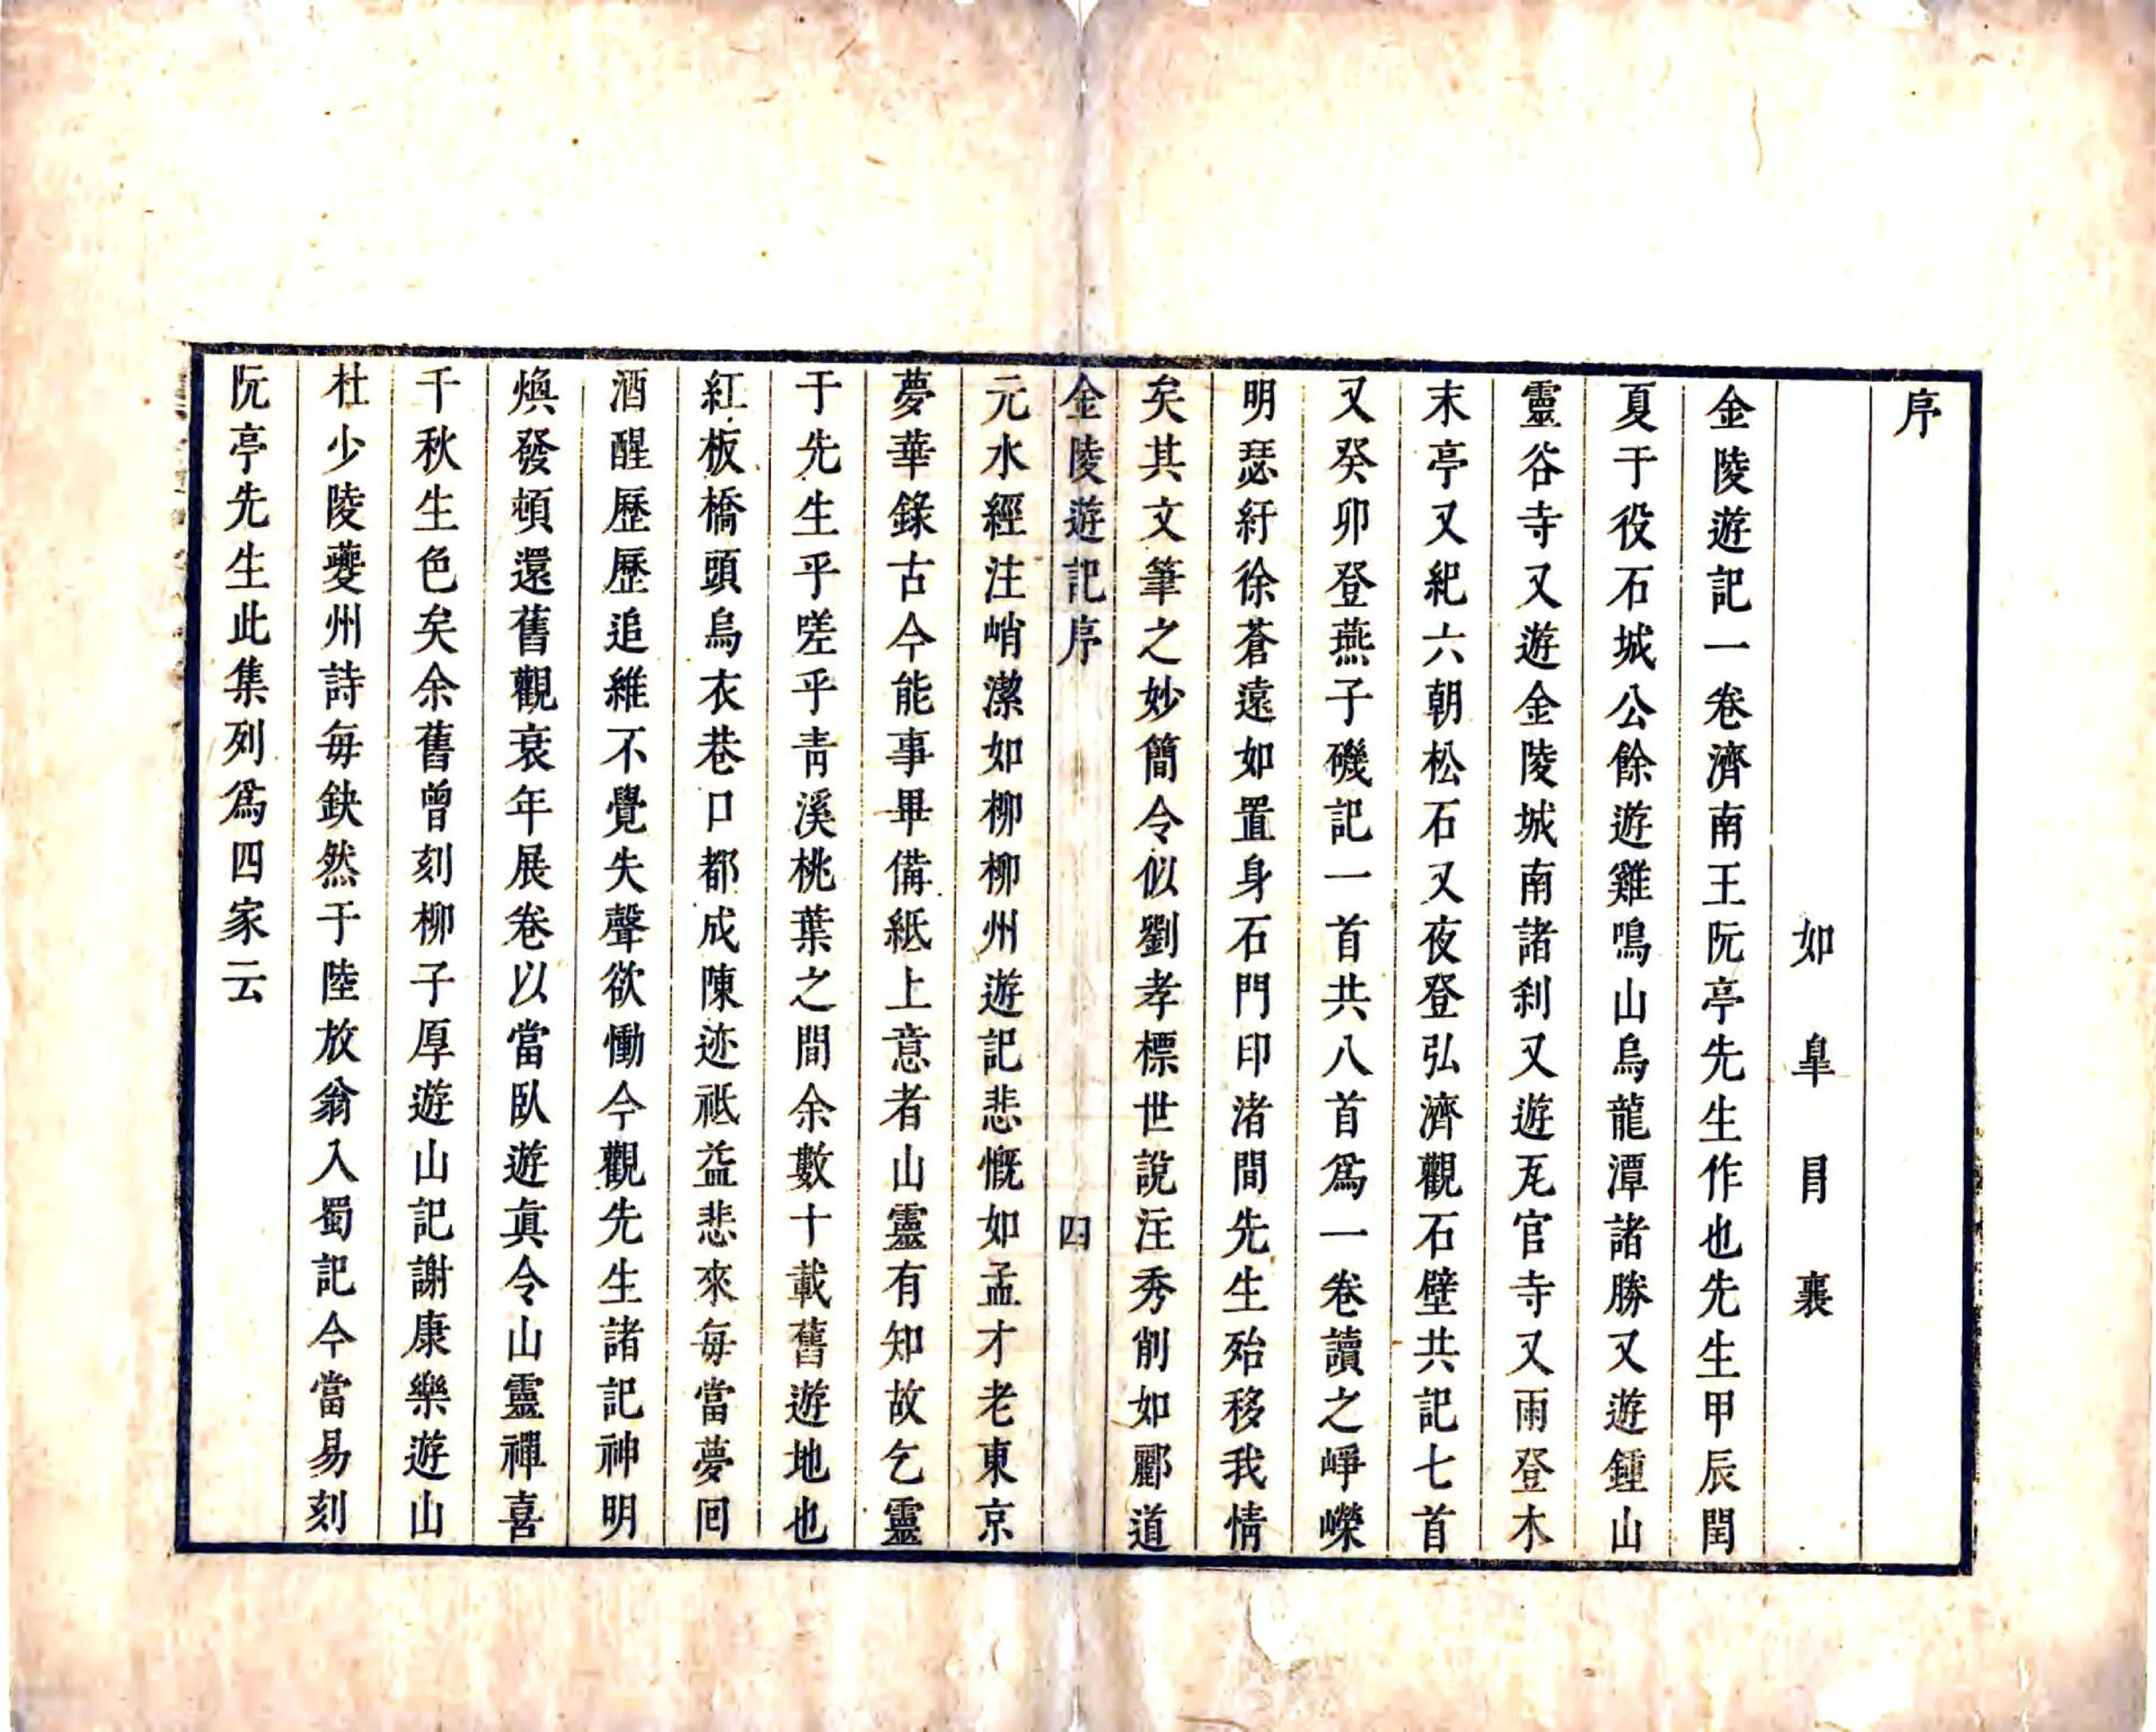 序
如皐冒襄
金陵遊記一卷濟南王阮亭先生作也先生甲辰閏
夏于役石城公餘遊雞鳴山烏龍潭諸勝又遊鍾山
靈谷寺又遊金陵城南諸刹又遊瓦官寺又雨登木
末亭又紀六朝松石又夜登弘濟觀石壁共記七首
又癸卯登燕子磯記一首共八首爲一卷讀之崢嶸
明瑟紆徐蒼遠如置身石門印渚間先生殆移我情
矣其文筆之妙簡令似劉孝標世說注秀削如酈道
金陵遊記序 四
元水經注峭潔如柳柳州遊記悲慨如孟才老東京
夢華錄古今能事畢備紙上意者山靈有知故乞靈
于先生乎嗟乎青溪桃葉之間余數十載舊遊地也
紅板橋頭烏衣巷口都成陳迹祗益悲來每當夢回
酒醒歷歷追維不覺失聲欲慟今觀先生諸記神明
煥發頓還舊觀衰年展卷以當臥遊眞令山靈禪喜
千秋生色矣余舊曾刻柳子厚遊山記謝康樂遊山
杜少陵夔州詩每鈌然于陸放翁入蜀記今當易刻
阮亭先生此集列爲四家云